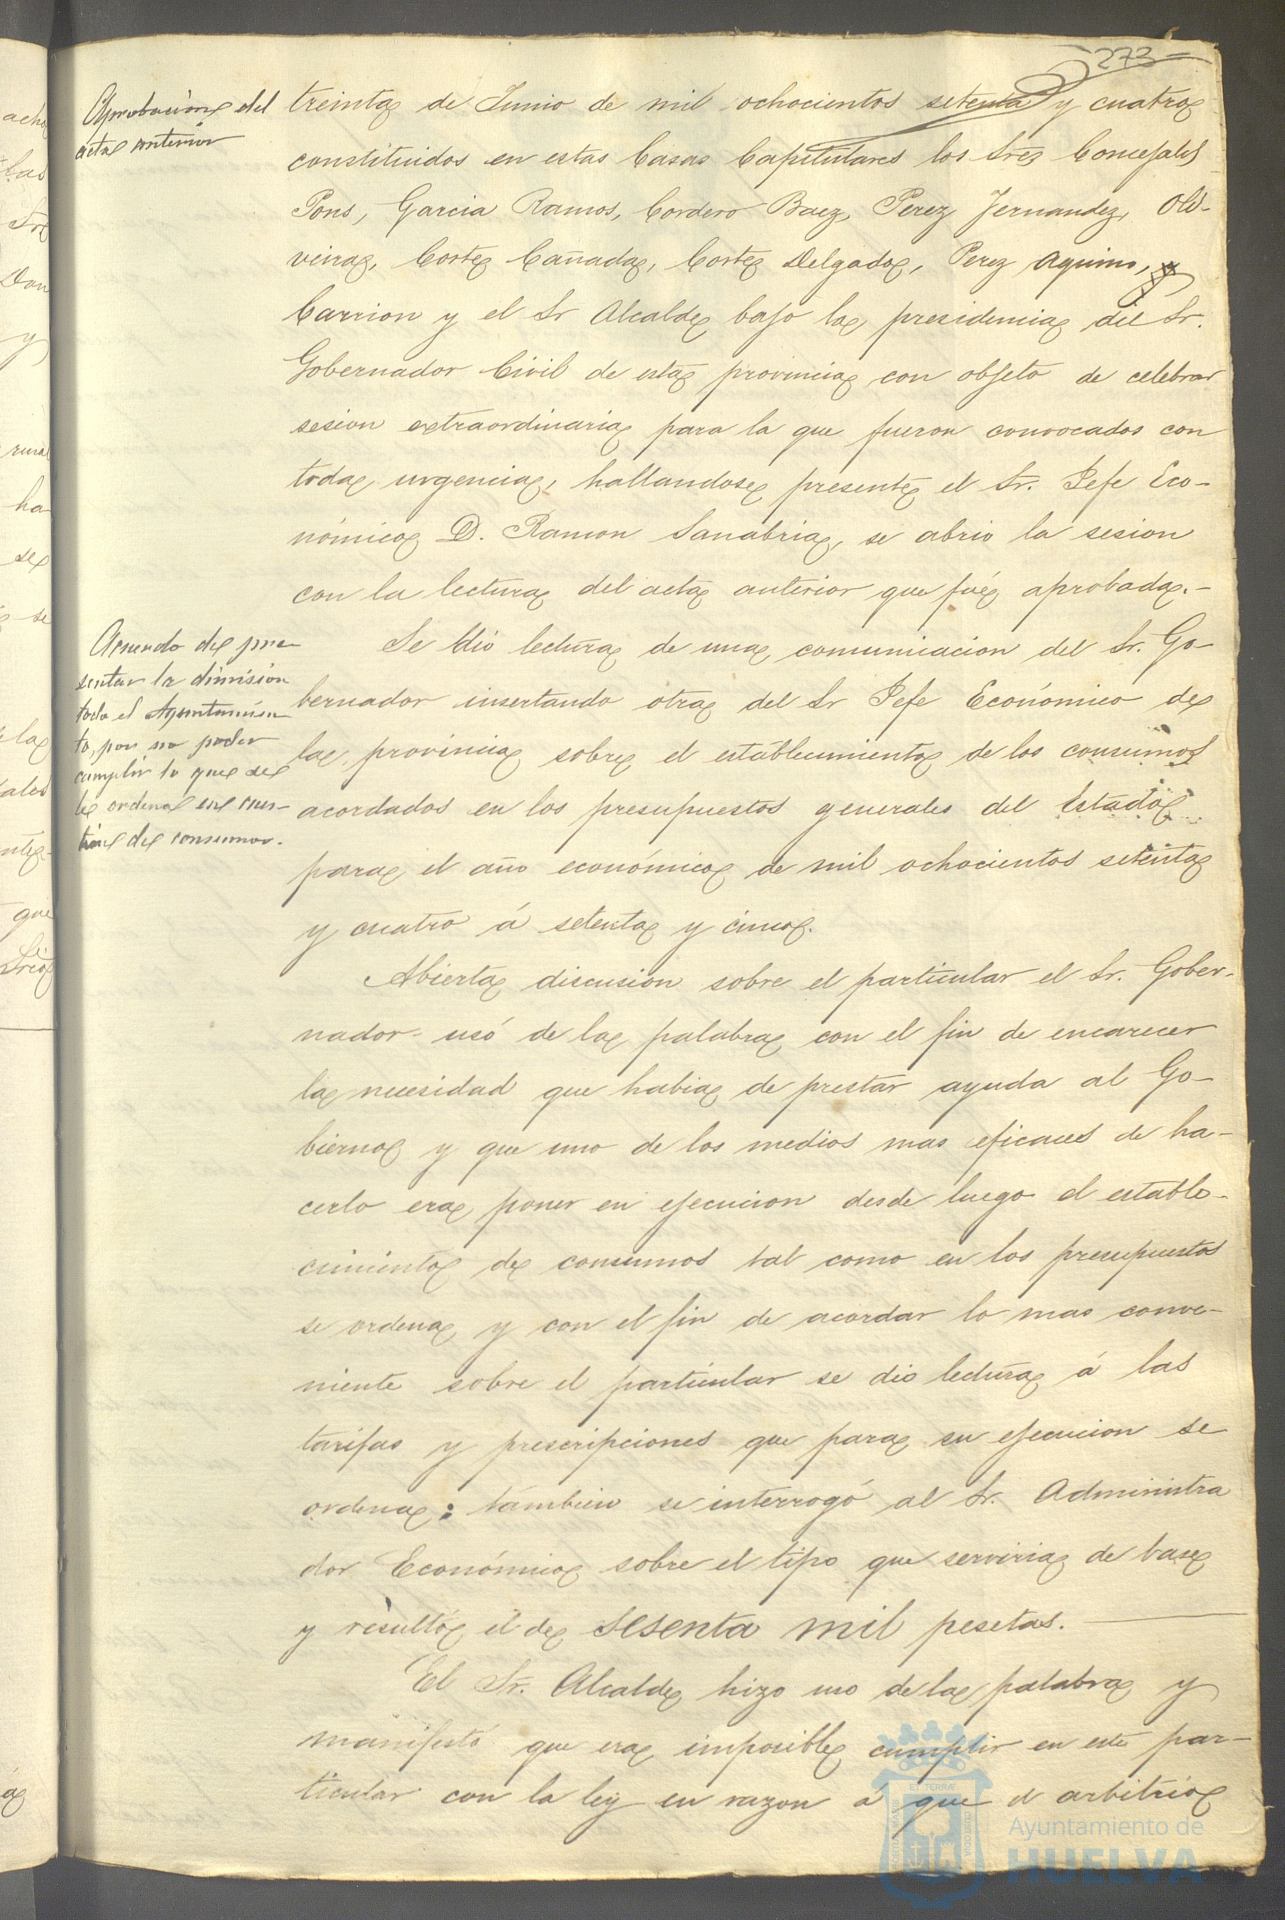 273
Aprobacion del
acta anterior
treinta de Junio de mil ochocientos setenta y cuatro
constituidos en estas Casas Capitulares los Sres Concejales
Pons, Garcia Ramos, Cordero Baez, Perez Fernandez, Oli-
veira, Cortes Cañada, Cortes Delgado, Perez Aquino, y
Carrion y el Sr Alcalde bajo la presidencia del Sr.
Gobernador Civil de esta provincia con objeto de celebrar
sesion extraordinaria para la que fueron convocados con
toda urgencia, hallandose presente el Sr. Jefe Eco-
nómico D. Ramon Sanabria, se abrio la sesion
con la lectura del acta anterior que fué aprobada.-
Acuerdo de pre-
sentar la dimision
todo el Ayuntamien-
to, por no poder
cumplir lo que se
le ordena en cues-
tion de consumos.
Se dio lectura de una comunicacion del Sr. Go-
bernador insertando otra del Sr Jefe Económico de
la provincia sobre el establecimiento de los consumos
acordados en los presupuestos generales del Estado
para el año económico de mil ochocientos setenta
y cuatro á setenta y cinco.
Abierta discusion sobre el particular el Sr. Gober-
nador usó de la palabra con el fin de encarecer
la necesidad que habia de prestar ayuda al Go-
bierno y que uno de los medios mas eficaces de ha-
cerlo era poner en ejecucion desde luego el estable-
cimiento de consumos tal como en los presupuestos
se ordena, y con el fin de acordar lo mas conve-
niente sobre el particular se dio lectura á las
tarifas y prescripciones que para su ejecucion se
ordena: tambien se interrogó al Sr. Administra
dor Económico sobre el tipo que serviria de base
y resultó el de sesenta mil pesetas.
El Sr. Alcalde hizo uso de la palabra y
manifestó que era imposible cumplir en este par-
ticular con la ley en razon á que el arbitrio
Ayuntamiento de
HUELVA